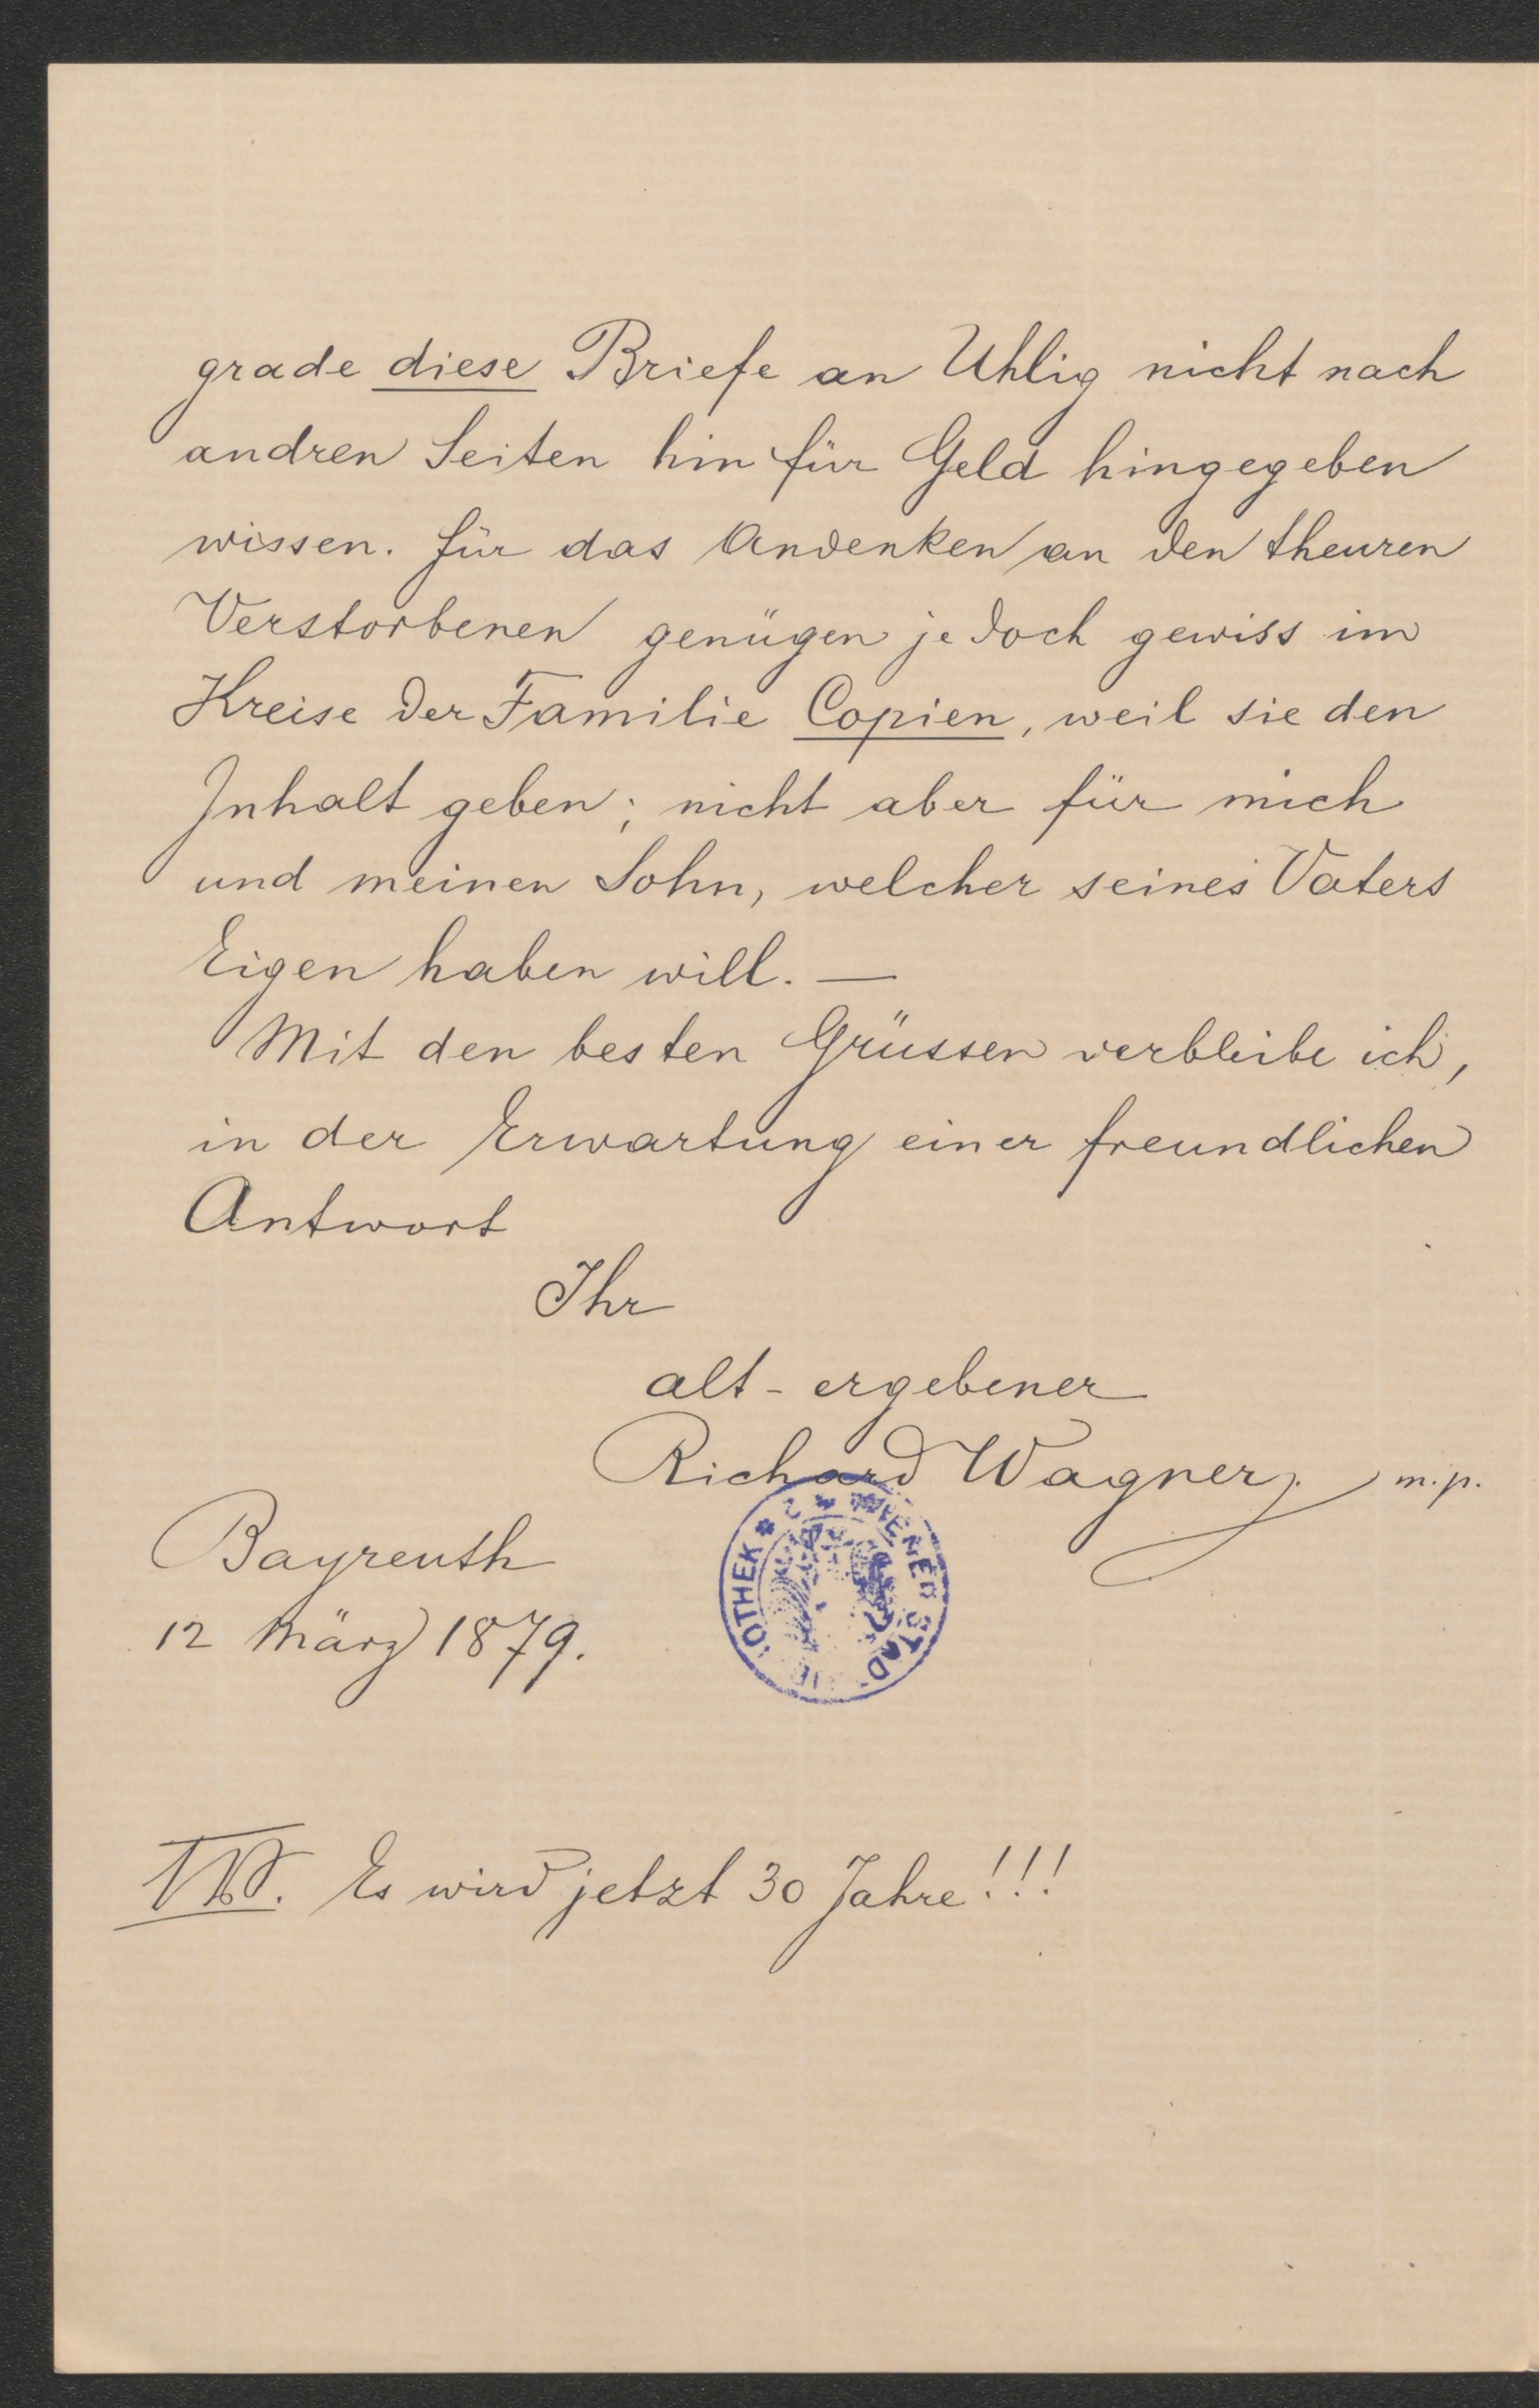 grade diese Briefe an Uhlig nicht nach
andren Seiten hin für Geld hingegeben
wissen. Für das Andenken an den theuren
Verstorbenen genügen jedoch gewiss im
Kreise der Familie Copien, weil sie den
Inhalt geben; nicht aber für mich
und meinen Sohn, welcher seines Vaters
Eigen haben will. —
Mit den besten Grüssen verbleibe ich,
in der Erwartung einer freundlichen
Antwort
Ihr
alt-ergebener
Richard Wagner. m.p.
WIENER STAD
IOTHEK
Bayreuth
12 März 1879.
NB. Es wird jetzt 30 Jahre!!!